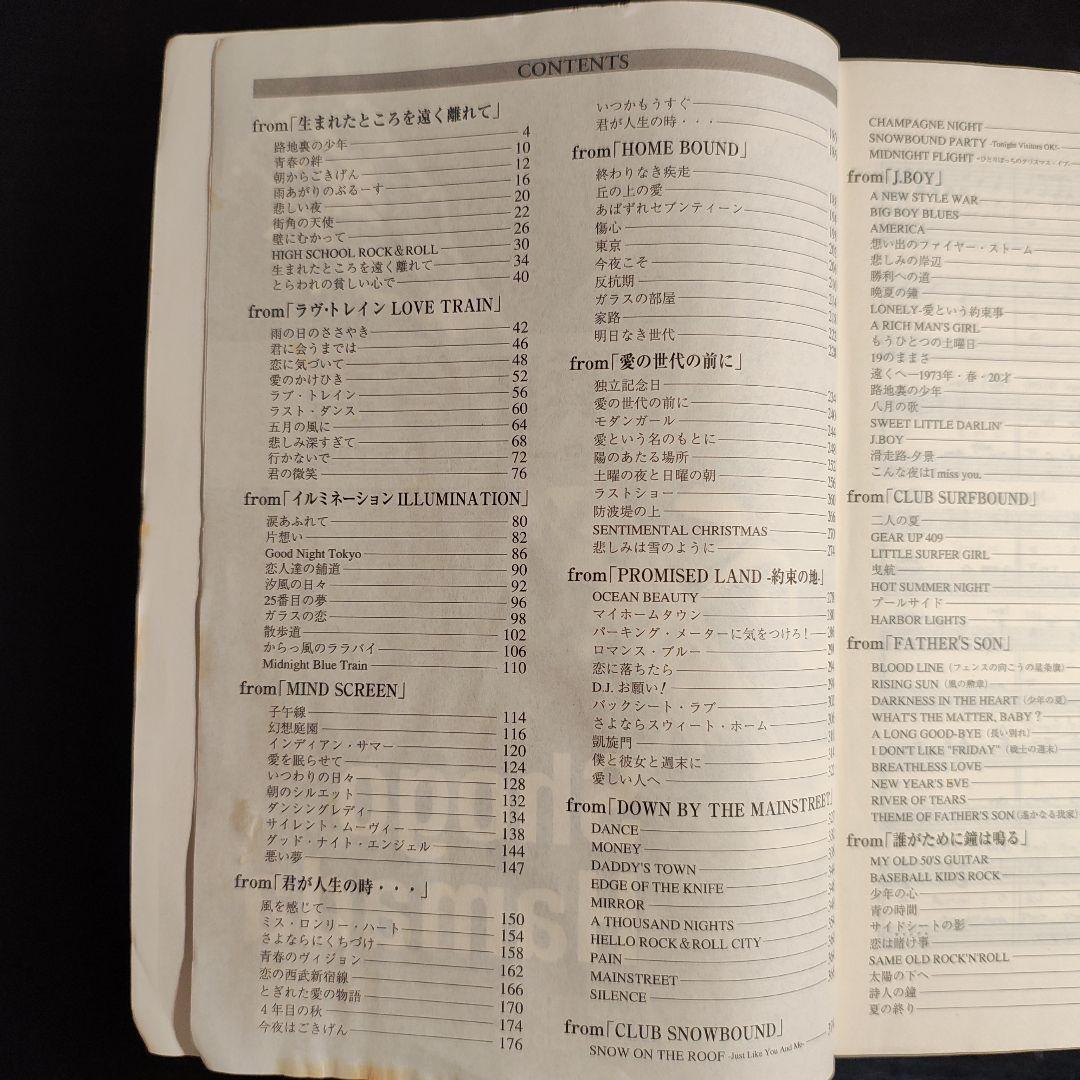 CONTENTS
from「生まれたところを遠く離れて」
路地裏の少年 4
青春の絆 10
朝からごきげん 12
雨あがりのぶるーす 16
悲しい夜 20
街角の天使 22
壁にむかって 26
HIGH SCHOOL ROCK&ROLL 30
生まれたところを遠く離れて 34
とらわれの貧しい心で 40
from「ラヴ・トレイン LOVE TRAIN」
雨の日のささやき 42
君に会うまでは 46
恋に気づいて 48
愛のかけひき 52
ラブ・トレイン 56
ラスト・ダンス 60
五月の風に 64
悲しみ深すぎて 68
行かないで 72
君の微笑 76
from「イルミネーション ILLUMINATION」
涙あふれて 80
片想い 82
Good Night Tokyo 86
恋人達の舗道 90
汐風の日々 92
25番目の夢 96
ガラスの恋 98
散歩道 102
からっ風のララバイ 106
Midnight Blue Train 110
from「MIND SCREEN」
子午線 114
幻想庭園 116
インディアン・サマー 120
愛を眠らせて 124
いつわりの日々 128
朝のシルエット 132
ダンシングレディ 134
サイレント・ムーヴィー 138
グッド・ナイト・エンジェル 144
悪い夢 147
from「君が人生の時・・・」
風を感じて 150
ミス・ロンリー・ハート 154
さよならにくちづけ 158
青春のヴィジョン 162
恋の西武新宿線 166
とぎれた愛の物語 170
4年目の秋 174
今夜はごきげん 176
いつかもうすぐ
君が人生の時・・・
from「HOME BOUND」
終わりなき疾走
丘の上の愛
あばずれセブンティーン
傷心
東京
今夜こそ
反抗期
ガラスの部屋
家路
明日なき世代
from「愛の世代の前に」
独立記念日 234
愛の世代の前に 240
モダンガール 244
愛という名のもとに 248
陽のあたる場所 252
土曜の夜と日曜の朝 256
ラストショー 260
防波堤の上 266
SENTIMENTAL CHRISTMAS 270
悲しみは雪のように 274
from「PROMISED LAND -約束の地-」
OCEAN BEAUTY 278
マイホームタウン 280
パーキング・メーターに気をつけろ! 286
ロマンス・ブルー
恋に落ちたら
D.J. お願い!
バックシート・ラブ
さよならスウィート・ホーム
凱旋門
僕と彼女と週末に
愛しい人へ
from「DOWN BY THE MAINSTREET」
DANCE
MONEY
DADDY'S TOWN
EDGE OF THE KNIFE
MIRROR
A THOUSAND NIGHTS
HELLO ROCK&ROLL CITY
PAIN
MAINSTREET
SILENCE
from「CLUB SNOWBOUND」
SNOW ON THE ROOF -Just Like You And Me-
CHAMPAGNE NIGHT
SNOWBOUND PARTY -Tonight Visitors OK!-
MIDNIGHT FLIGHT -ひとりぼっちのクリスマス・イブ-
from「J.BOY」
A NEW STYLE WAR
BIG BOY BLUES
AMERICA
想い出のファイヤー・ストーム
悲しみの岸辺
勝利への道
晩夏の鐘
LONELY-愛という約束事
A RICH MAN'S GIRL
もうひとつの土曜日
19のままさ
遠くへ—1973年・春・20才
路地裏の少年
八月の歌
SWEET LITTLE DARLIN'
J.BOY
滑走路-夕景
こんな夜はI miss you.
from「CLUB SURFBOUND」
二人の夏
GEAR UP 409
LITTLE SURFER GIRL
曳航
HOT SUMMER NIGHT
プールサイド
HARBOR LIGHTS
from「FATHER'S SON」
BLOOD LINE(フェンスの向こうの星条旗)
RISING SUN(風の勲章)
DARKNESS IN THE HEART(少年の夏)
WHAT'S THE MATTER, BABY?
A LONG GOOD-BYE(長い別れ)
I DON'T LIKE "FRIDAY"(戦士の週末)
BREATHLESS LOVE
NEW YEAR'S EVE
RIVER OF TEARS
THEME OF FATHER'S SON(遙かなる我家)
from「誰がために鐘は鳴る」
MY OLD 50'S GUITAR
BASEBALL KID'S ROCK
少年の心
青の時間
サイドシートの影
恋は賭け事
SAME OLD ROCK'N'ROLL
太陽の下へ
詩人の鐘
夏の終り